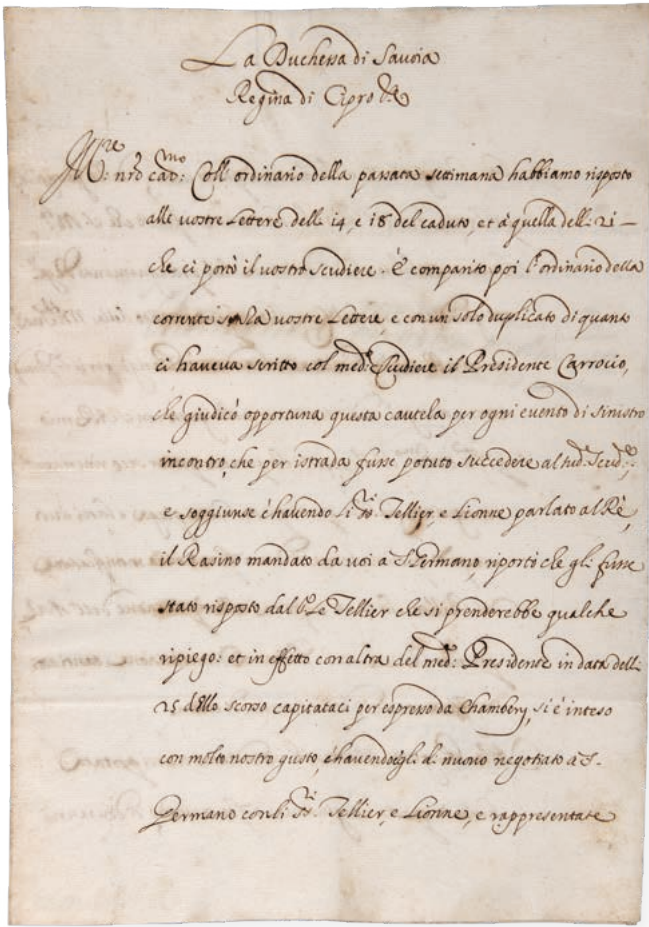 La Duchessa di Savoia
Regina di Cipro &c
M:re nrō car:mo Coll'ordinario della passata settimana habbiamo risposto
alle vostre Lettere dell. 14, e 18 del caduto, et à quella dell. 21 –
che ci portò il vostro scudiere. È comparito poi l'ordinario della
corrente senza vostre Lettere, e con un solo duplicato di quanto
ci haveva scritto col med:o Scudiere il Presidente Carroccio,
che giudicò opportuna questa cautela per ogni evento di sinistro
incontro, che per istrada fusse potuto succedere al sud:o Scud:e;
e soggiunse c'havendo li SS:ri Tellier, e Lionne parlato al Rè,
il Rasino mandato da voi a S. Germano, riportò che gli fusse
stato risposto dal Le Tellier che si prenderebbe qualche
ripiego: et in effetto con altra del med:o Presidente in data dell.
25 dello scorso capitataci per espresso da Chambery, si è inteso
con molto nostro gusto, c'havendo egli di nuovo negotiato a S.
Germano con li SS:ri Tellier, e Lionne, e rappresentate